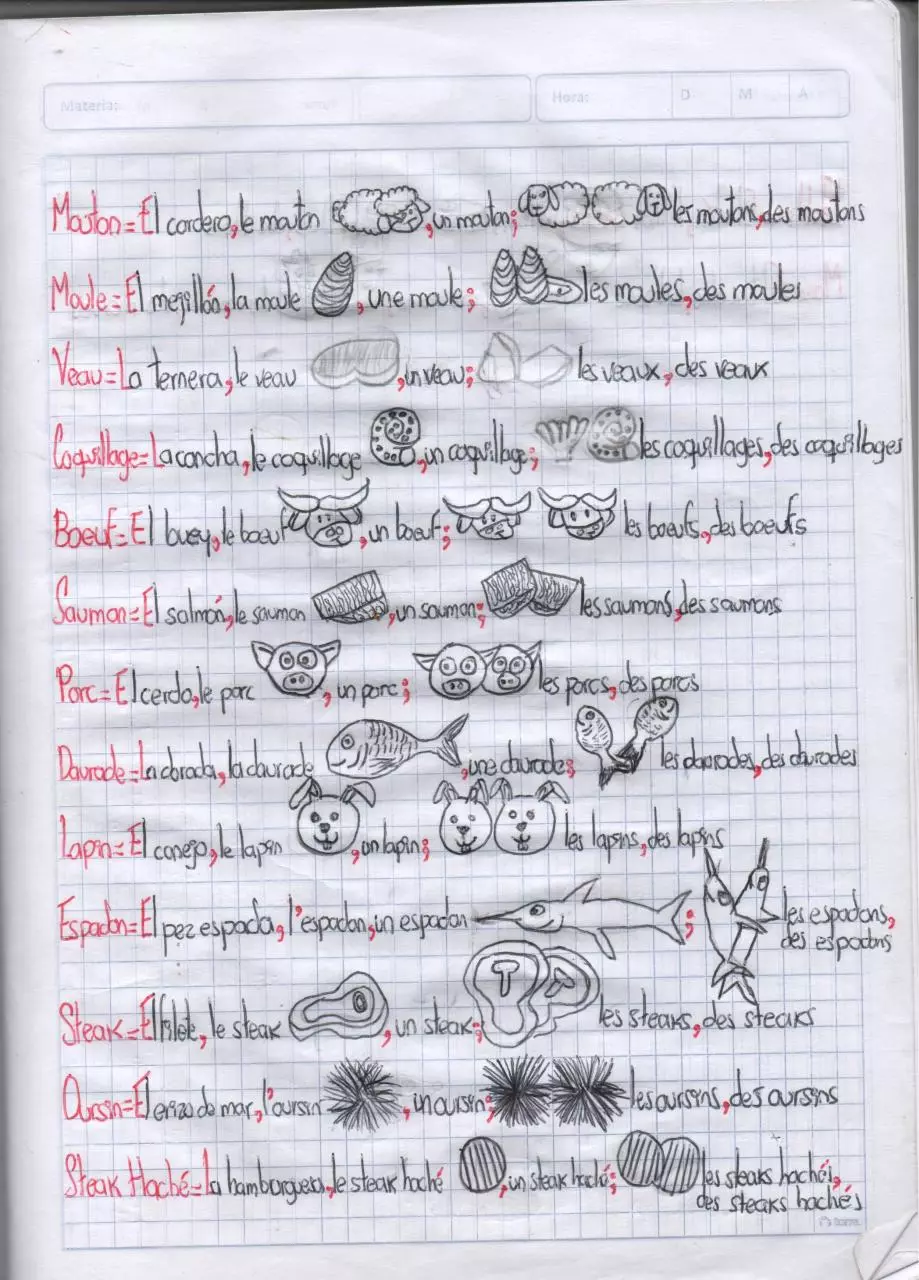 Materia: Hora: D M A
Mouton = El cordero, le mouton , un mouton; les moutons, des moutons
Moule = El mejillón, la moule , une moule; les moules, des moules
Veau = La ternera, le veau , un veau; les veaux, des veaux
Coquillage = La concha, le coquillage , un coquillage; les coquillages, des coquillages
Boeuf = El buey, le boeuf , un boeuf; les boeufs, des boeufs
Saumon = El salmón, le saumon , un saumon; les saumons, des saumons
Porc = El cerdo, le porc , un porc; les porcs, des porcs
Daurade = La dorada, la daurade , une daurade; les daurades, des daurades
Lapin = El conejo, le lapin , un lapin; les lapins, des lapins
Espadon = El pez espada, l'espadon, un espadon ; les espadons,
des espadons
Steak = El filete, le steak , un steak; les steaks, des steaks
Oursin = El erizo de mar, l'oursin , un oursin; les oursins, des oursins
Steak Haché = La hamburguesa, le steak haché , un steak haché; les steaks hachés,
des steaks hachés